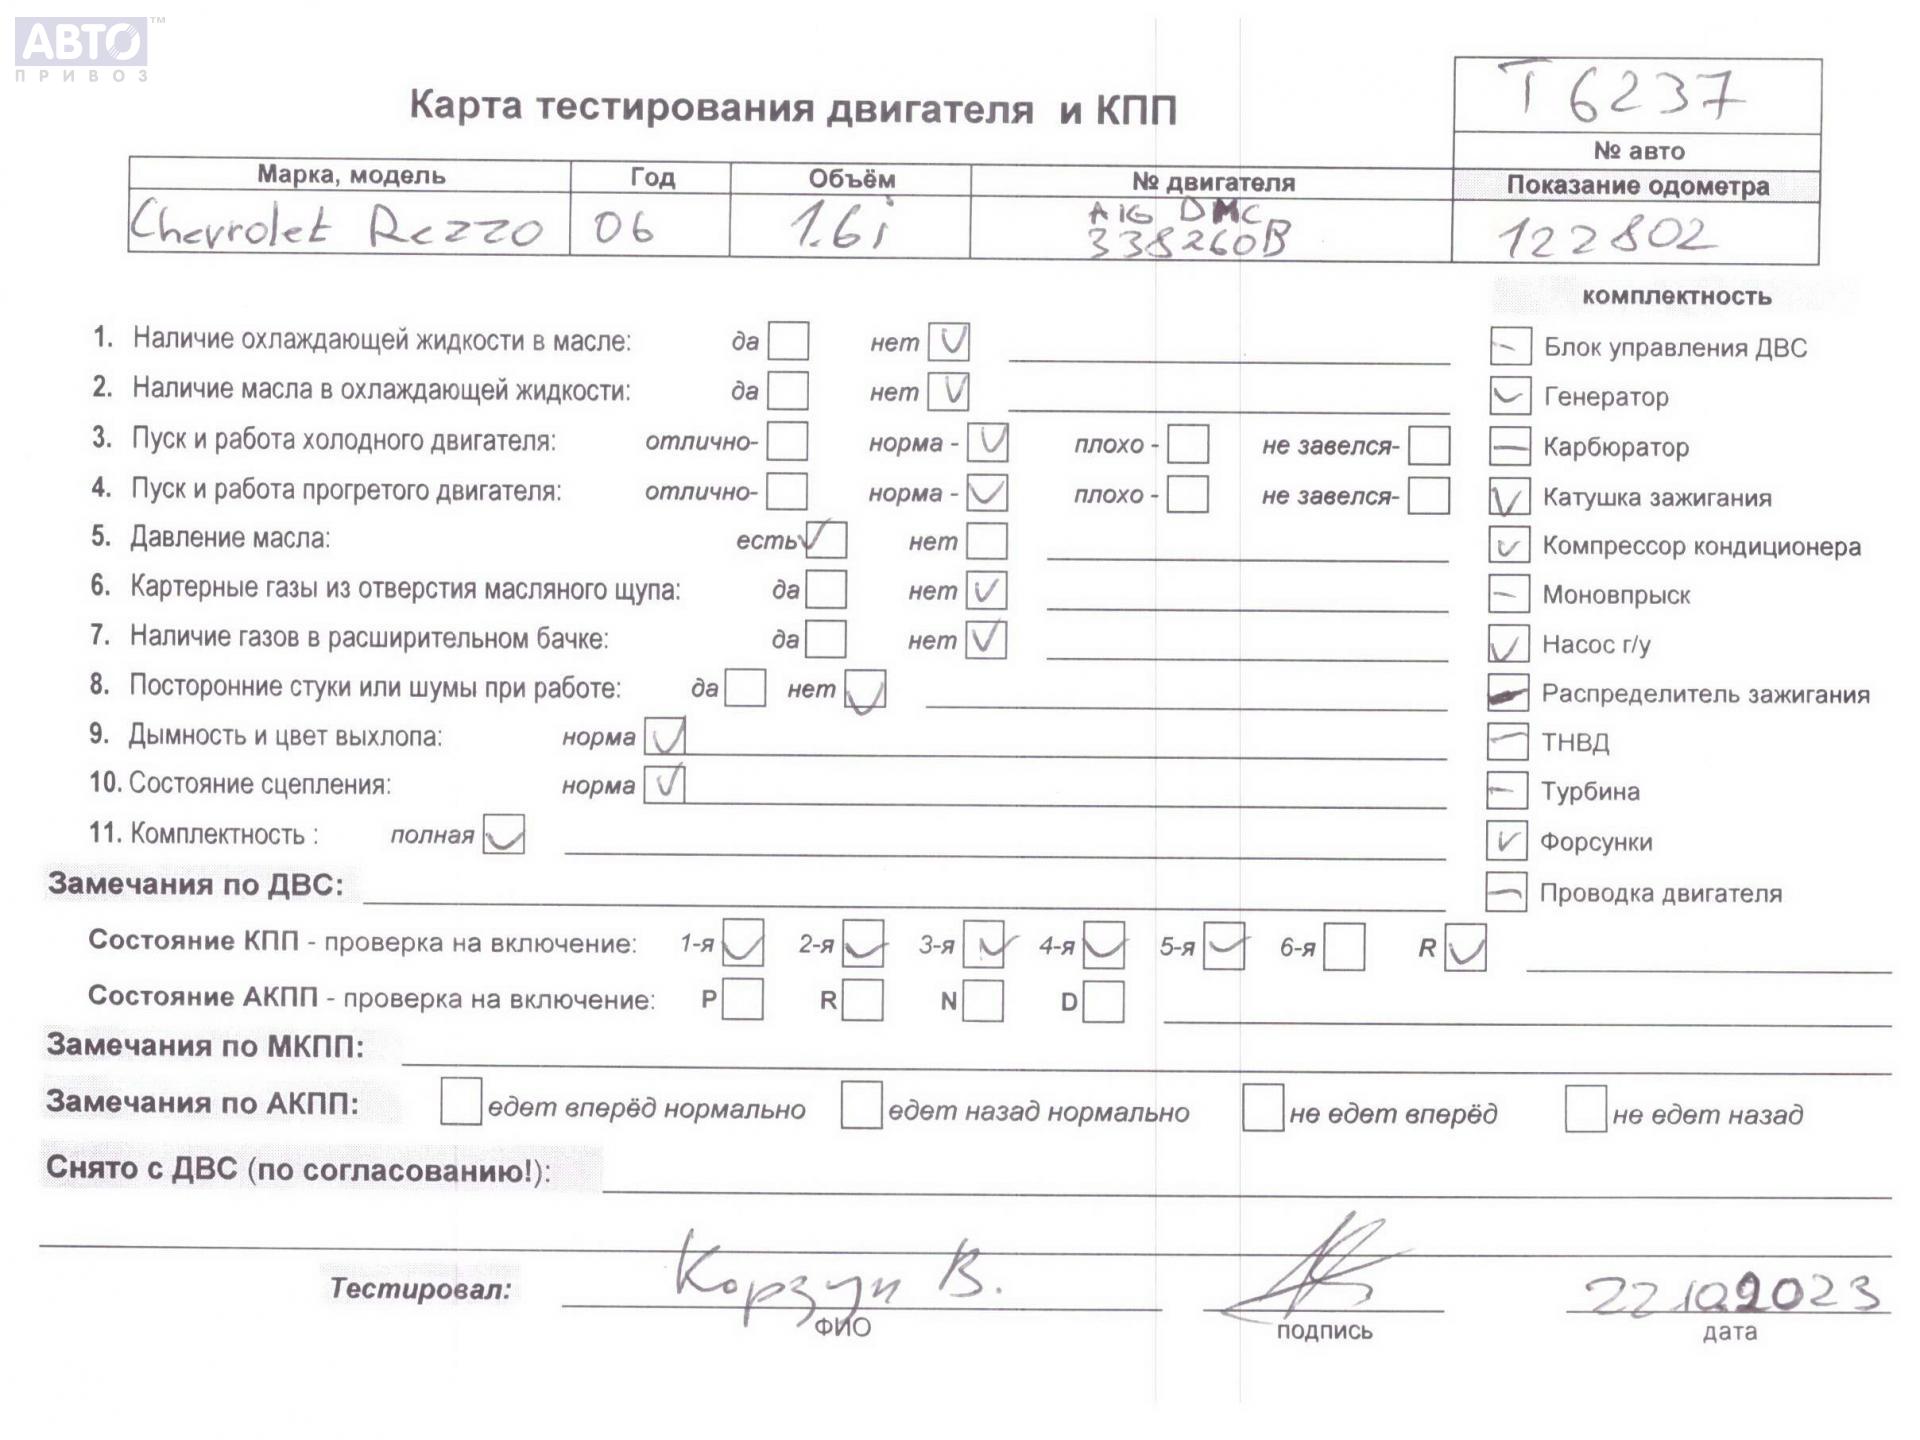 АВТО™
ПРИВОЗ
Т 6237
Карта тестирования двигателя и КПП
№ авто
Марка, модель Год Объём № двигателя Показание одометра
Chevrolet Rezzo 06 1.6i A16 DMC 338260B 122802
комплектность
1. Наличие охлаждающей жидкости в масле: да нет V
Блок управления ДВС
2. Наличие масла в охлаждающей жидкости: да нет V
Генератор
3. Пуск и работа холодного двигателя: отлично- норма - V плохо - не завелся-
Карбюратор
4. Пуск и работа прогретого двигателя: отлично- норма - V плохо - не завелся-
Катушка зажигания
5. Давление масла: есть V нет
Компрессор кондиционера
6. Картерные газы из отверстия масляного щупа: да нет V
Моновпрыск
7. Наличие газов в расширительном бачке: да нет V
Насос г/у
8. Посторонние стуки или шумы при работе: да нет V
Распределитель зажигания
9. Дымность и цвет выхлопа: норма V
ТНВД
10. Состояние сцепления: норма V
Турбина
11. Комплектность : полная V
Форсунки
Замечания по ДВС:
Проводка двигателя
Состояние КПП - проверка на включение: 1-я V 2-я V 3-я V 4-я V 5-я V 6-я R V
Состояние АКПП - проверка на включение: P R N D
Замечания по МКПП:
Замечания по АКПП: едет вперёд нормально едет назад нормально не едет вперёд не едет назад
Снято с ДВС (по согласованию!):
Тестировал: Корзун В. 22.10.2023
ФИО подпись дата